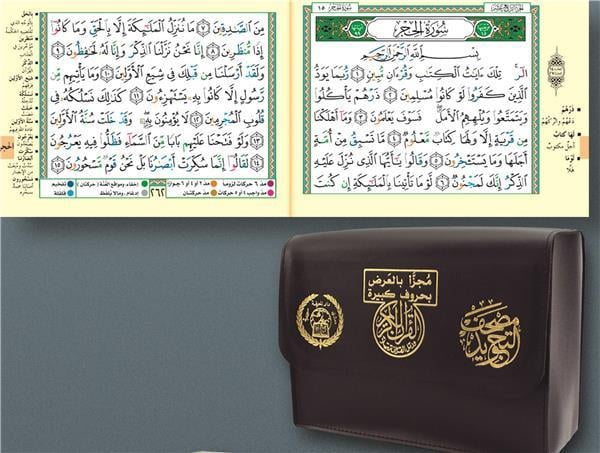 سُورَةُ الحِجْرِ
بِسْمِ ٱللَّهِ ٱلرَّحْمَٰنِ ٱلرَّحِيمِ
الٓرۚ تِلْكَ ءَايَٰتُ ٱلْكِتَٰبِ وَقُرْءَانٍ مُّبِينٍ ۝١ رُّبَمَا يَوَدُّ
ٱلَّذِينَ كَفَرُوا۟ لَوْ كَانُوا۟ مُسْلِمِينَ ۝٢ ذَرْهُمْ يَأْكُلُوا۟
وَيَتَمَتَّعُوا۟ وَيُلْهِهِمُ ٱلْأَمَلُۖ فَسَوْفَ يَعْلَمُونَ ۝٣ وَمَآ أَهْلَكْنَا
مِن قَرْيَةٍ إِلَّا وَلَهَا كِتَابٌ مَّعْلُومٌ ۝٤ مَّا تَسْبِقُ مِنْ أُمَّةٍ
أَجَلَهَا وَمَا يَسْتَـْٔخِرُونَ ۝٥ وَقَالُوا۟ يَٰٓأَيُّهَا ٱلَّذِى نُزِّلَ عَلَيْهِ
ٱلذِّكْرُ إِنَّكَ لَمَجْنُونٌ ۝٦ لَّوْ مَا تَأْتِينَا بِٱلْمَلَٰٓئِكَةِ إِن كُنتَ
ذَرْهُمْ
دعهم واتركهم
لها كتابٌ
أجل مكتوب
لَوْ مَا
هَلَّا
مِنَ ٱلصَّٰدِقِينَ ۝٧ مَا نُنَزِّلُ ٱلْمَلَٰٓئِكَةَ إِلَّا بِٱلْحَقِّ وَمَا كَانُوٓا۟
إِذًا مُّنظَرِينَ ۝٨ إِنَّا نَحْنُ نَزَّلْنَا ٱلذِّكْرَ وَإِنَّا لَهُۥ لَحَٰفِظُونَ ۝٩
وَلَقَدْ أَرْسَلْنَا مِن قَبْلِكَ فِى شِيَعِ ٱلْأَوَّلِينَ ۝١٠ وَمَا يَأْتِيهِم مِّن
رَّسُولٍ إِلَّا كَانُوا۟ بِهِۦ يَسْتَهْزِءُونَ ۝١١ كَذَٰلِكَ نَسْلُكُهُۥ فِى
قُلُوبِ ٱلْمُجْرِمِينَ ۝١٢ لَا يُؤْمِنُونَ بِهِۦۖ وَقَدْ خَلَتْ سُنَّةُ ٱلْأَوَّلِينَ
۝١٣ وَلَوْ فَتَحْنَا عَلَيْهِم بَابًا مِّنَ ٱلسَّمَآءِ فَظَلُّوا۟ فِيهِ يَعْرُجُونَ
۝١٤ لَقَالُوٓا۟ إِنَّمَا سُكِّرَتْ أَبْصَٰرُنَا بَلْ نَحْنُ قَوْمٌ مَّسْحُورُونَ ۝١٥
مد ٦ حركات لزوماً مد ٢ أو ٤ أو ٦ جوازاً إخفاء، ومواقع الغنّة (حركتان) تفخيم
مد واجب ٤ أو ٥ حركات مد حركتان ٢٦٢ إدغام، وما لا يلفظ قلقلة
الحجر
مُجزّأ بالعَرض
بحروف كبيرة
القرآن الكريم
مصحف
التجويد